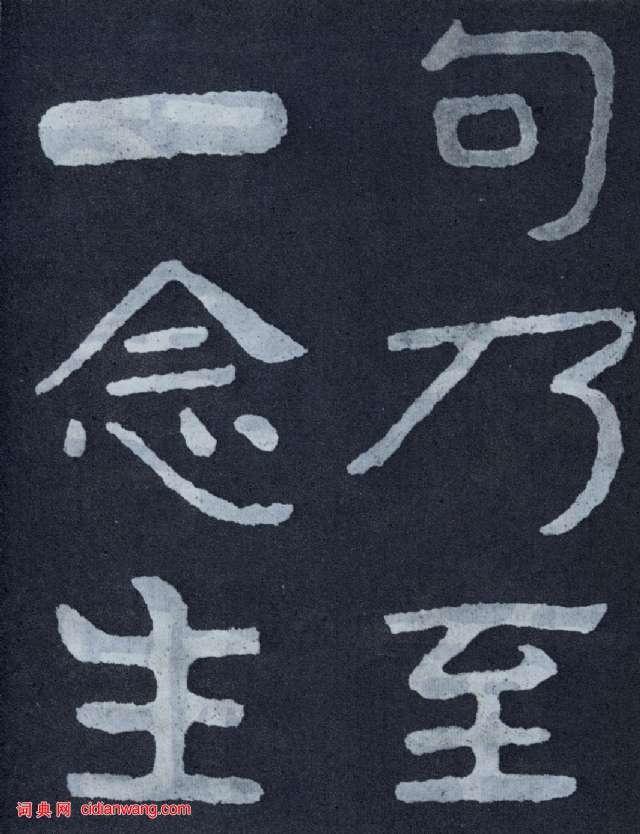 句乃至
一念生
词典网 cidianwang.com